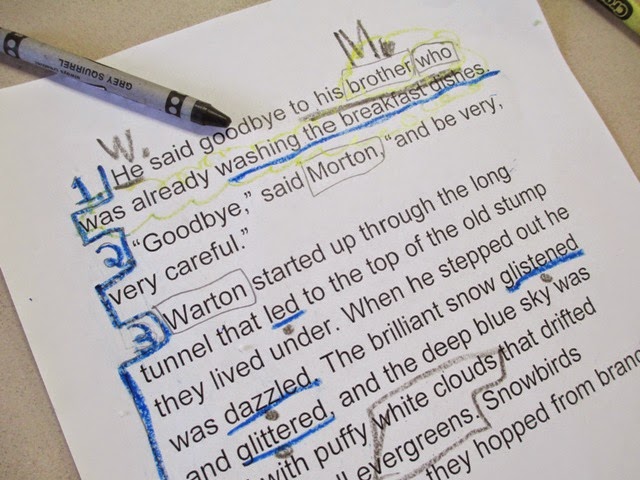 GREY SQUIRREL
M.
W.
1 He said goodbye to his brother who
was already washing the breakfast dishes.
2 "Goodbye," said Morton, "and be very,
very careful."
3 Warton started up through the long
tunnel that led to the top of the old stump
they lived under. When he stepped out he
was dazzled. The brilliant snow glistened
and glittered, and the deep blue sky was
with puffy white clouds that drifted
evergreens. Snowbirds
they hopped from